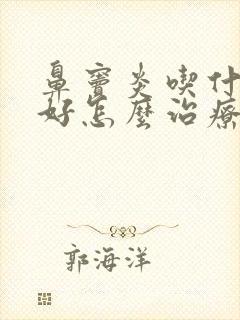 鼻竇炎喫什
好怎麼治療
郭海洋